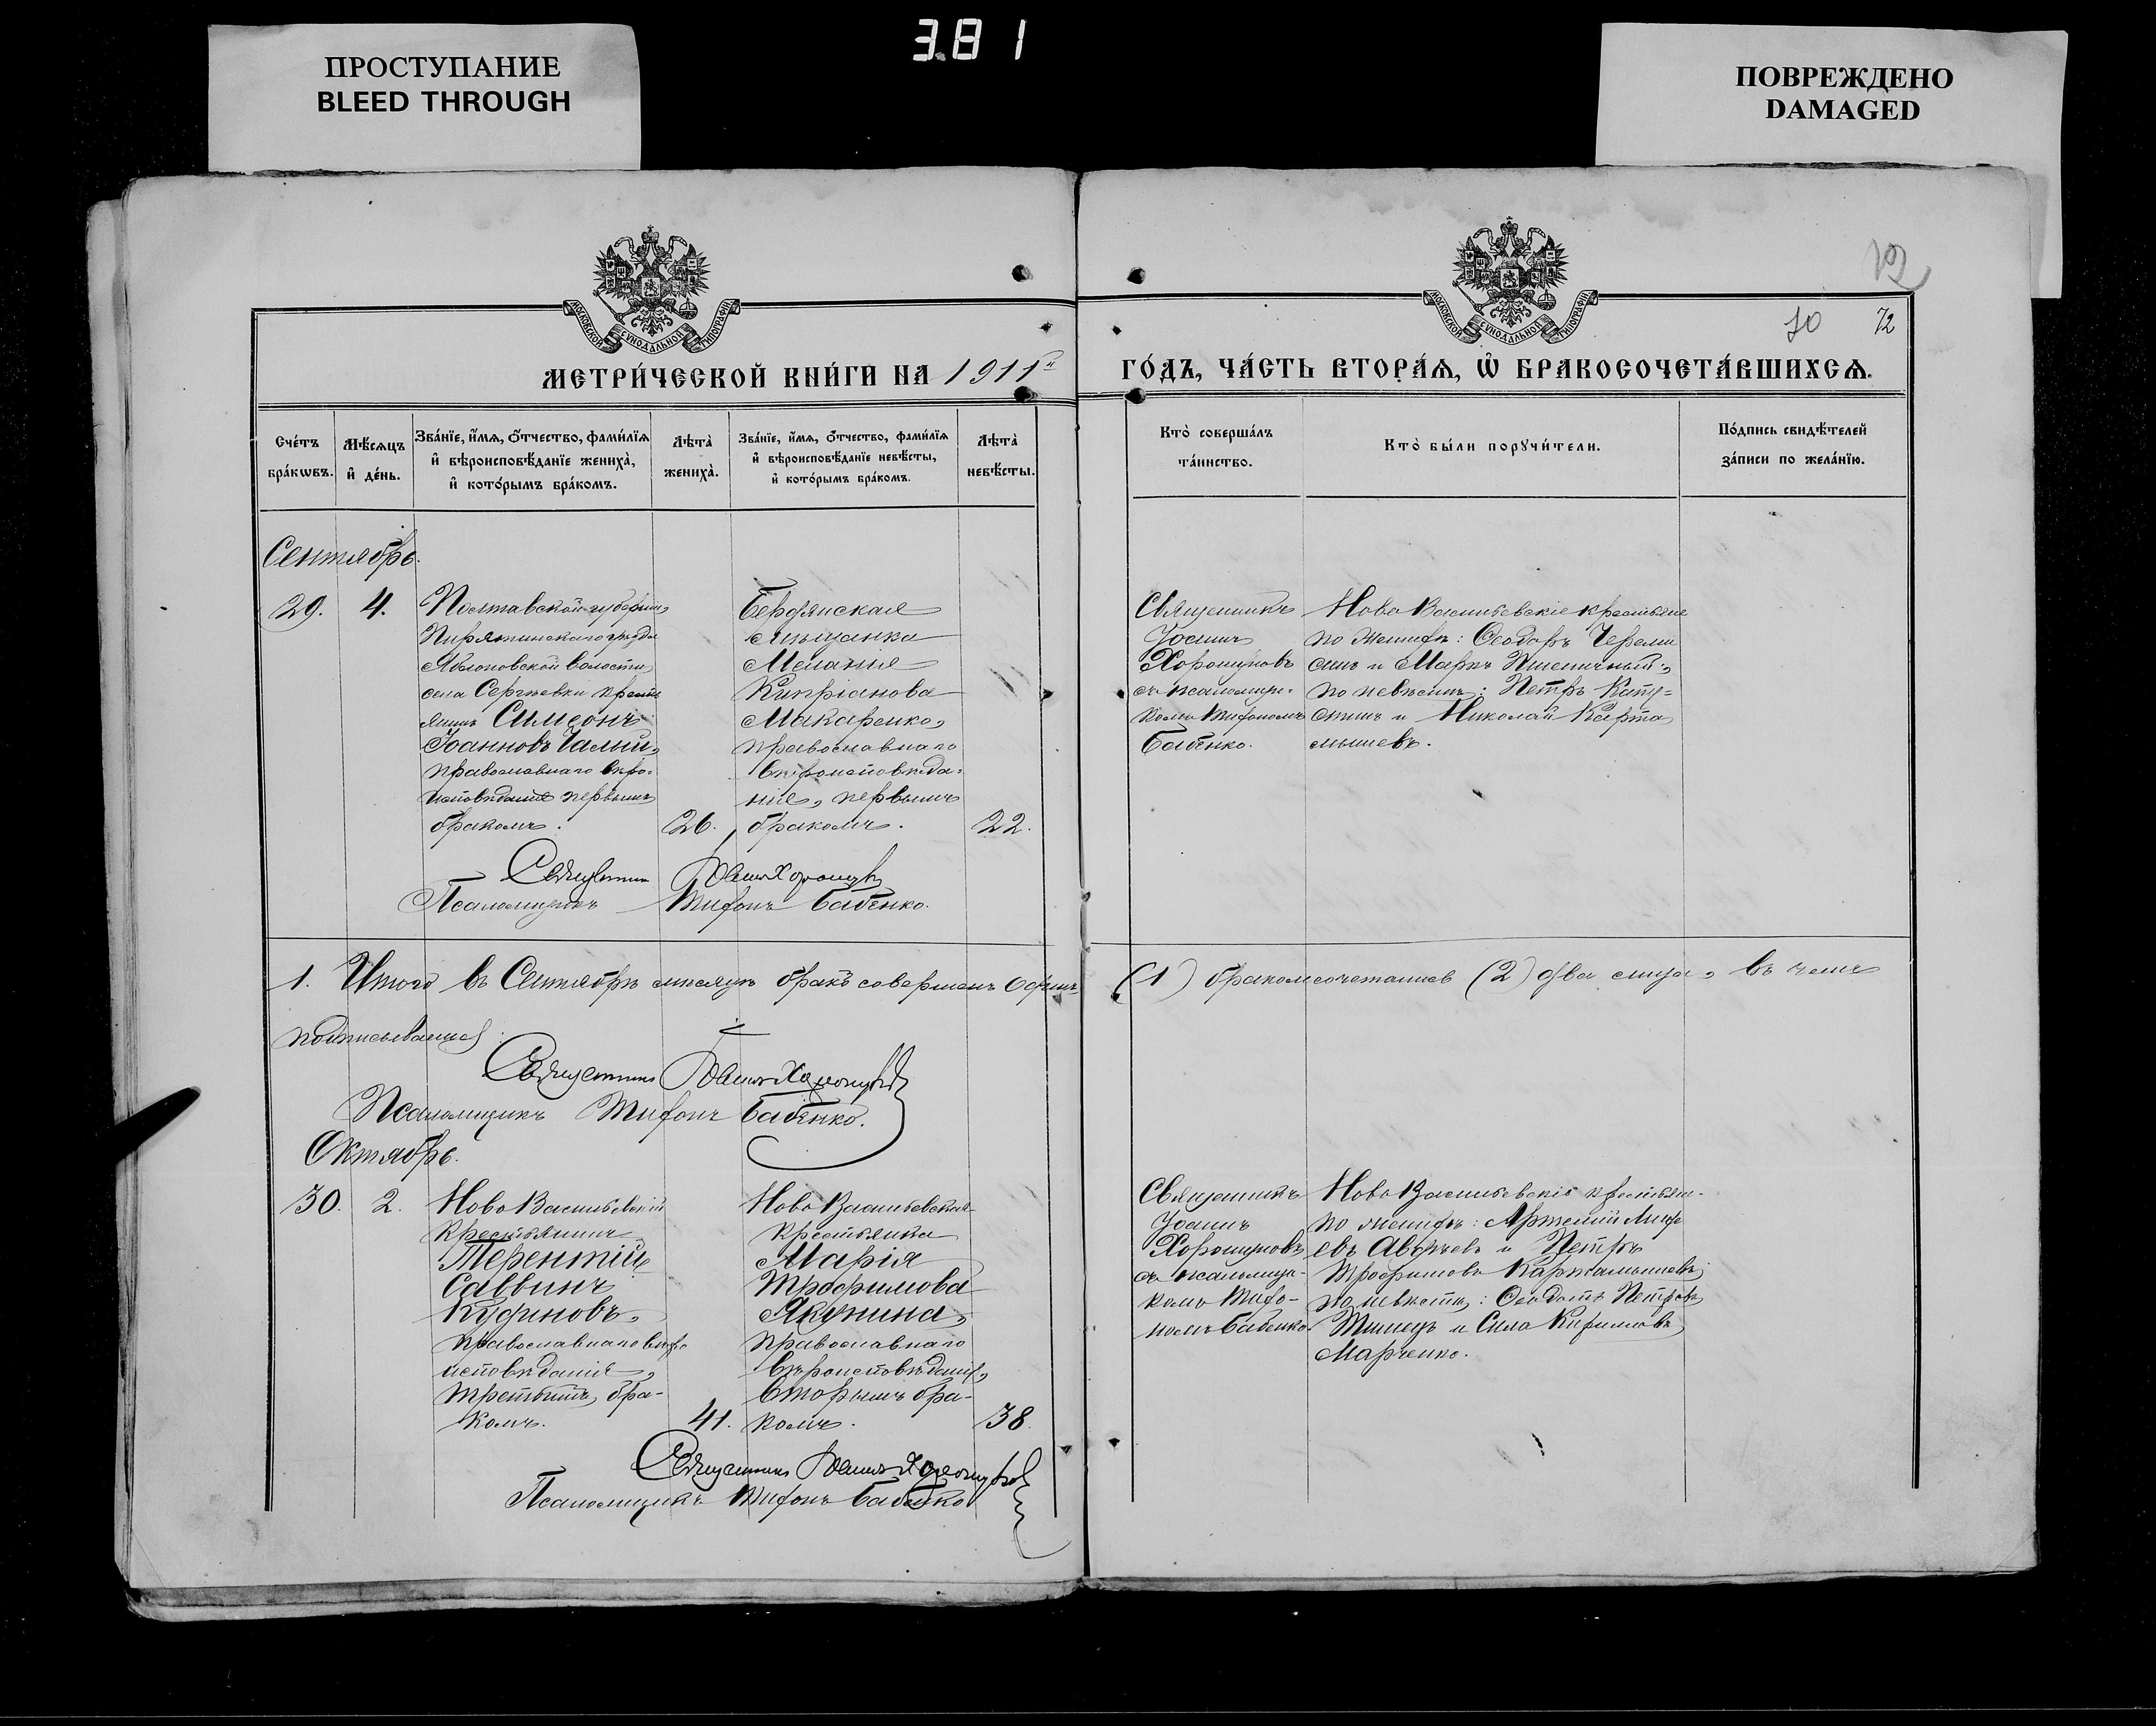 ПРОСТУПАНИЕ
BLEED THROUGH
381
ПОВРЕЖДЕНО
DAMAGED
МОСКОВСКОЙ СѴНОДАЛЬНОЙ ТИПОГРАФІИ
МОСКОВСКОЙ СѴНОДАЛЬНОЙ ТИПОГРАФІИ
70 72
МЕТРИ́ЧЕСКОЙ КНИ́ГИ НА 1911й
ГО́ДЪ, ЧА́СТЬ ВТОРА́Ѧ, Ѡ҆ БРАКОСОЧЕТА́ВШИХСѦ.
Сче́тъ бра́кѡвъ.
Мѣ́сѧцъ и҆ де́нь.
Зва́нїе, и҆́мѧ, ѻ҆́тчество, фами́лїѧ
и҆ вѣроисповѣ́данїе жениха̀,
и҆ кото́рымъ бра́комъ.
Лѣта̀ жениха̀.
Зва́нїе, и҆́мѧ, ѻ҆́тчество, фами́лїѧ
и҆ вѣроисповѣ́данїе невѣ́сты,
и҆ кото́рымъ бра́комъ.
Лѣта̀ невѣ́сты.
Кто̀ соверша́лъ та́инство.
Кто̀ бы́ли порꙋчи́тели.
По́дпись свидѣ́телей
за́писи по жела́нїю.
Сентябрь.
29. 4.
Полтавской губерніи,
Пирятинскаго уѣзда
Яблоновской волости
села Сергѣевки кресть
янинъ Симеонъ
Іоанновъ Чалый,
православнаго вѣро-
исповѣданія первымъ
бракомъ. 26.
Бердянская
мѣщанка
Меланія
Кипріанова
Макаренко,
православнаго
вѣроисповѣда-
нія, первымъ
бракомъ. 22.
Священникъ
Іоаннъ
Хорошуновъ
съ псаломщи-
комъ Тифономъ
Бабенко.
Ново Васильевскіе крестьяне
по женихѣ: Ѳеодоръ Черем
синъ и Маркъ Пшеничный,
по невѣстѣ: Петръ
и Николай Карта
мышевъ.
Священникъ Іоаннъ Хорошуновъ
Псаломщикъ Тифонъ Бабенко.
1. Итого въ Сентябрѣ мѣсяцѣ бракъ совершенъ одинъ (1) бракомсочетанныхъ (2) два лица, въ чемъ
подписываемся:
Священникъ Іоаннъ Хорошуновъ
Псаломщикъ Тифонъ Бабенко.
Октябрь.
30. 2.
Ново Васильевскій
крестьянинъ
Терентій
Саввинъ
Кудиновъ,
православнаго вѣро
исповѣданія,
третьимъ бра-
комъ. 41.
Ново Васильевская
крестьянка
Марія
Трофимова
Якунина,
православнаго
вѣроисповѣданія,
вторымъ бра-
комъ. 38.
Священникъ
Іоаннъ
Хорошуновъ
съ псаломщи-
комъ Тифо-
номъ Бабенко.
Ново Васильевскіе крестьяне
по женихѣ: Артемій
Авдѣевъ и Петръ
Трофимовъ Картамышевъ;
по невѣстѣ: Ѳеодотъ Петровъ
и Сила Кирилловъ
Марченко.
Священникъ Іоаннъ Хорошуновъ
Псаломщикъ Тифонъ Бабенко